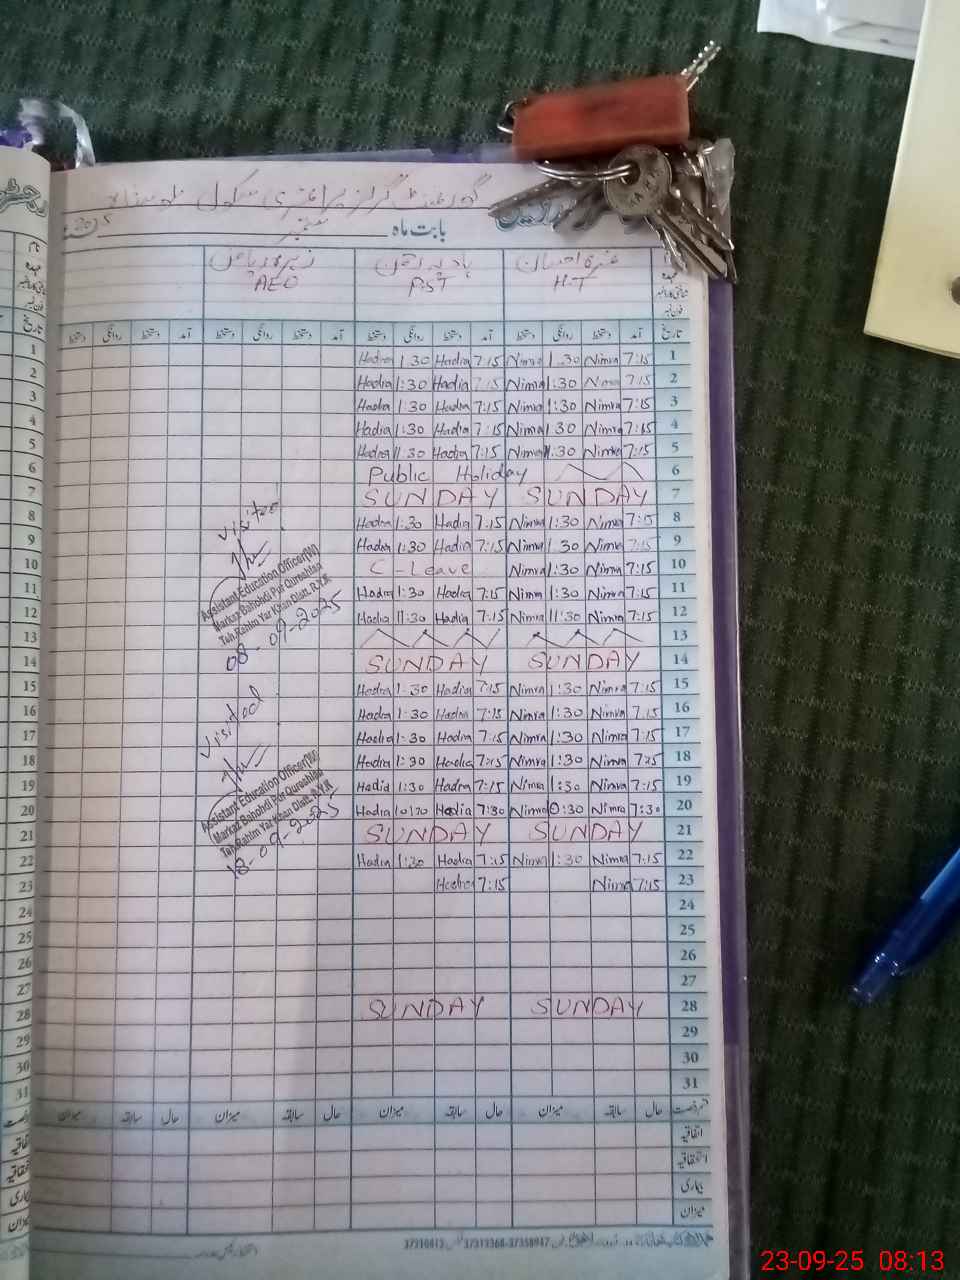 گورنمنٹ گرلز پرائمری سکول
2025 ستمبر بابت ماہ
AEO P.S.T H.T
دستخط روانگی دستخط آمد دستخط روانگی دستخط آمد دستخط روانگی دستخط آمد دستخط روانگی دستخط آمد تاریخ
Hadia 1:30 Hadia 7:15 Nimra 1:30 Nimra 7:15 1
Hadia 1:30 Hadia 7:15 Nimra 1:30 Nimra 7:15 2
Hadia 1:30 Hadia 7:15 Nimra 1:30 Nimra 7:15 3
Hadia 1:30 Hadia 7:15 Nimra 1:30 Nimra 7:15 4
Hadia 11:30 Hadia 7:15 Nimra 11:30 Nimra 7:15 5
Public Holiday 6
SUNDAY SUNDAY 7
Hadia 1:30 Hadia 7:15 Nimra 1:30 Nimra 7:15 8
Hadia 1:30 Hadia 7:15 Nimra 1:30 Nimra 7:15 9
C-Leave Nimra 1:30 Nimra 7:15 10
Hadia 1:30 Hadia 7:15 Nimra 1:30 Nimra 7:15 11
Hadia 11:30 Hadia 7:15 Nimra 11:30 Nimra 7:15 12
13
SUNDAY SUNDAY 14
Hadia 1:30 Hadia 7:15 Nimra 1:30 Nimra 7:15 15
Hadia 1:30 Hadia 7:15 Nimra 1:30 Nimra 7:15 16
Hadia 1:30 Hadia 7:15 Nimra 1:30 Nimra 7:15 17
Hadia 1:30 Hadia 7:15 Nimra 1:30 Nimra 7:15 18
Hadia 1:30 Hadia 7:15 Nimra 1:30 Nimra 7:15 19
Hadia Hadia 7:30 Nimra 10:30 Nimra 7:30 20
SUNDAY SUNDAY 21
Hadia 1:30 Hadia 7:15 Nimra 1:30 Nimra 7:15 22
Hadia 7:15 Nimra 7:15 23
24
25
26
27
SUNDAY SUNDAY 28
29
30
31
میزان سابقہ حال میزان سابقہ حال میزان سابقہ حال میزان سابقہ حال
اتفاقیہ
استحقاقیہ
بیماری
میزان
Visited
Assistant Education Officer(W)
Markaz Bahohdi Pur Qureshian
Teh.Rahim Yar Khan Distt. R.Y.K
08-09-2025
Visited
Assistant Education Officer(W)
Markaz Bahohdi Pur Qureshian
Teh.Rahim Yar Khan Distt. R.Y.K
18-09-2025
23-09-25 08:13